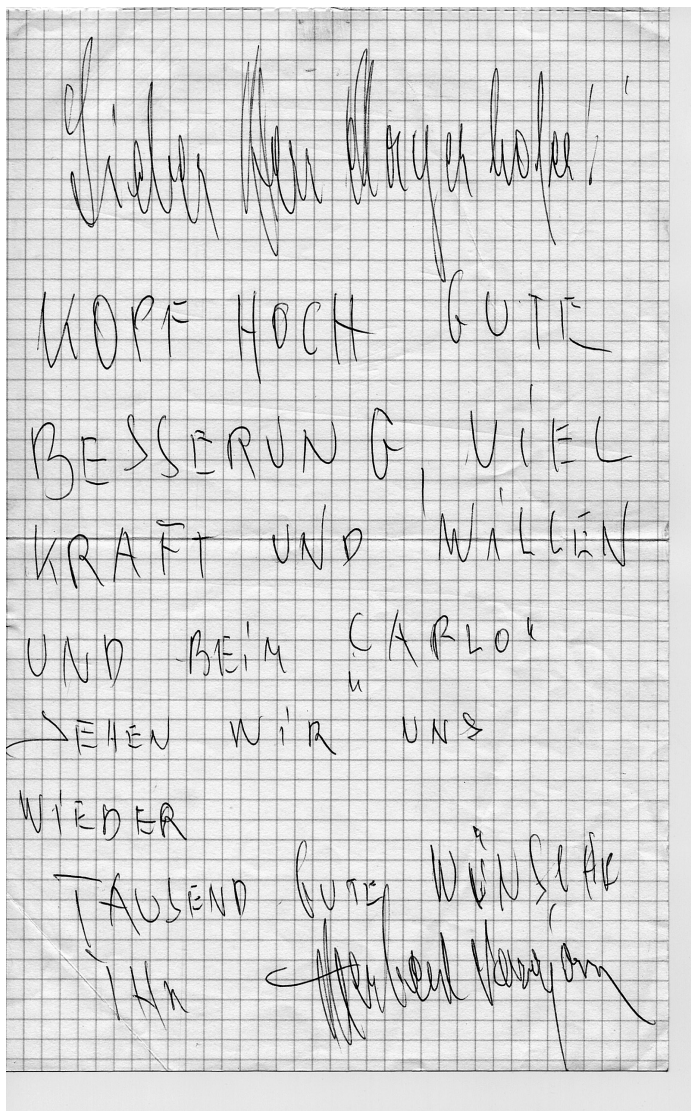 Lieber Herr Mayerhofer!
KOPF HOCH GUTE
BESSERUNG, VIEL
KRAFT UND WILLEN
UND BEIM „CARLO“
SEHEN WIR UNS
WIEDER
TAUSEND GUTE WÜNSCHE
IHR